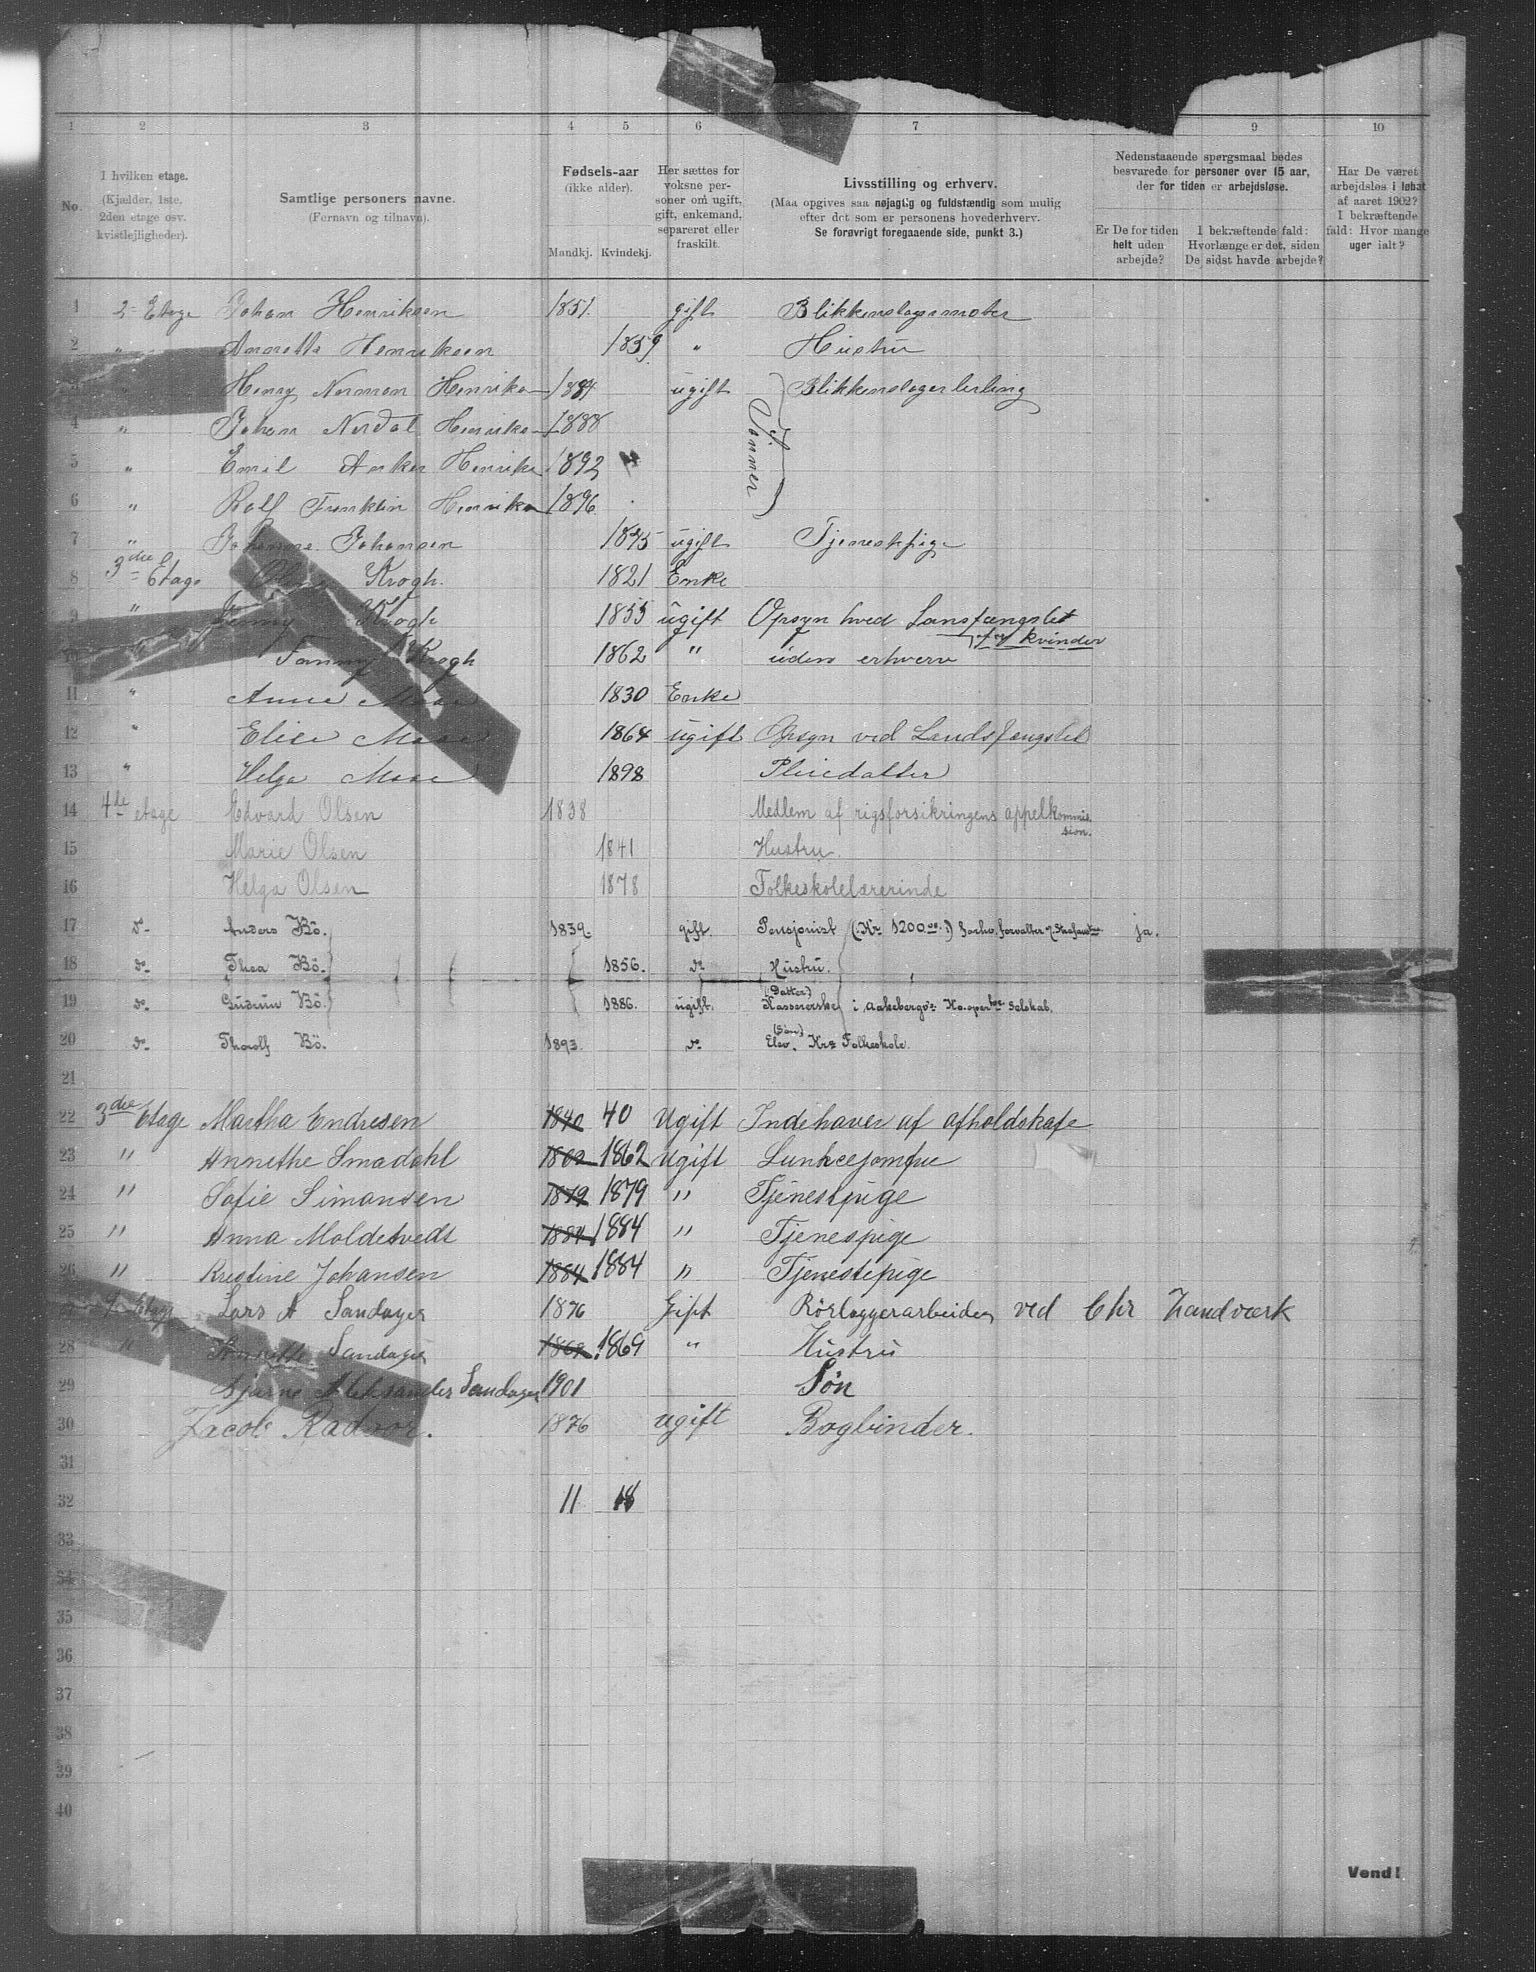 1 2 3 4 5 6 7 9 10
No.
I hvilken etage.
(Kjælder, 1ste, 2den etage osv. kvistlejligheder).
Samtlige personers navne.
(Fornavn og tilnavn).
Fødsels-aar
(ikke alder).
Mandkj. Kvindekj.
Her sættes for voksne personer om ugift, gift, enkemand, separeret eller fraskilt.
Livsstilling og erhverv.
(Maa opgives saa nøjagtig og fuldstændig som mulig
efter det som er personens hovederhverv.
Se forøvrigt foregaaende side, punkt 3.)
Nedenstaaende spørgsmaal bedes
besvarede for personer over 15 aar,
der for tiden er arbejdsløse.
Er De for tiden helt uden arbejde?
I bekræftende fald: Hvorlænge er det, siden De sidst havde arbejde?
Har De været arbejdsløs i løbet af aaret 1902? I bekræftende fald: Hvor mange uger ialt?
1 2 Etage Johan Henriksen 1851. gift Blikkenslagermester
2 " Henriksen 1859 " Hustru
3 " Henry Norman Henriksen 1884 ugift Blikkenslagerlerling
Sönner
4 " Johan Nordal Henriksen 1888
5 " Emil Anker Henriksen 1892
6 " Rolf Franklin Henriksen 1896
7 " Johanne Johansen 1875 ugift Tjenestepige
8 3die Etage Krogh. 1821 Enke
9 " Jenny Krogh 1855 ugift Opsyn hved Lansfængslet
for kvinder
10 Fanny Krogh 1862 " uden erhverv
11 " Anne Moae 1830 Enke
12 " Elise Moae 1864 ugift Opsyn ved Landsfængslet
13 " Helga Moae 1898 Pleiedatter
14 4de etage Edvard Olsen 1838 Medlem af rigsforsikringens appelkommis-
sion.
15 Marie Olsen 1841 Hustru.
16 Helga Olsen 1878 Folkeskolelærerinde
17 do Anders Bö. 1839. gift. Pensjonist (Kr. 1200 00.) forvalter ja.
18 do Thea Bö. 1856. do Hustru.
19 do Gudrun Bö. 1886. ugift. (Datter) Kassererske i Aakebergv: Ko.oper tive Selskab.
20 do Thorolf Bö. 1893. do (Sön) Elev. Kr.a Folkeskole.
21
22 3die Etage Martha Endresen 1840 40 Ugift Indehaver af afholdskafe
23 " Annethe Smadahl 1862 1862 Ugift
24 " Sofie Simonsen 1879 1879 " Tjenestpige
25 " Anna Moldetvedt 1884 1884 " Tjenespige
26 " Kristine Johansen 1884 1884 " Tjenestepige
Etage Lars A Sandager 1876 Gift Rörlæggerarbeider ved Chr Landværk
28 " Sandager 1869 1869 " Hustru
29 Bjarne Aleksander Sandager 1901 Søn
30 Jacob 1876 ugift Bogbinder.
31
32 11 18
33
34
35
36
37
38
39
40
Vend!